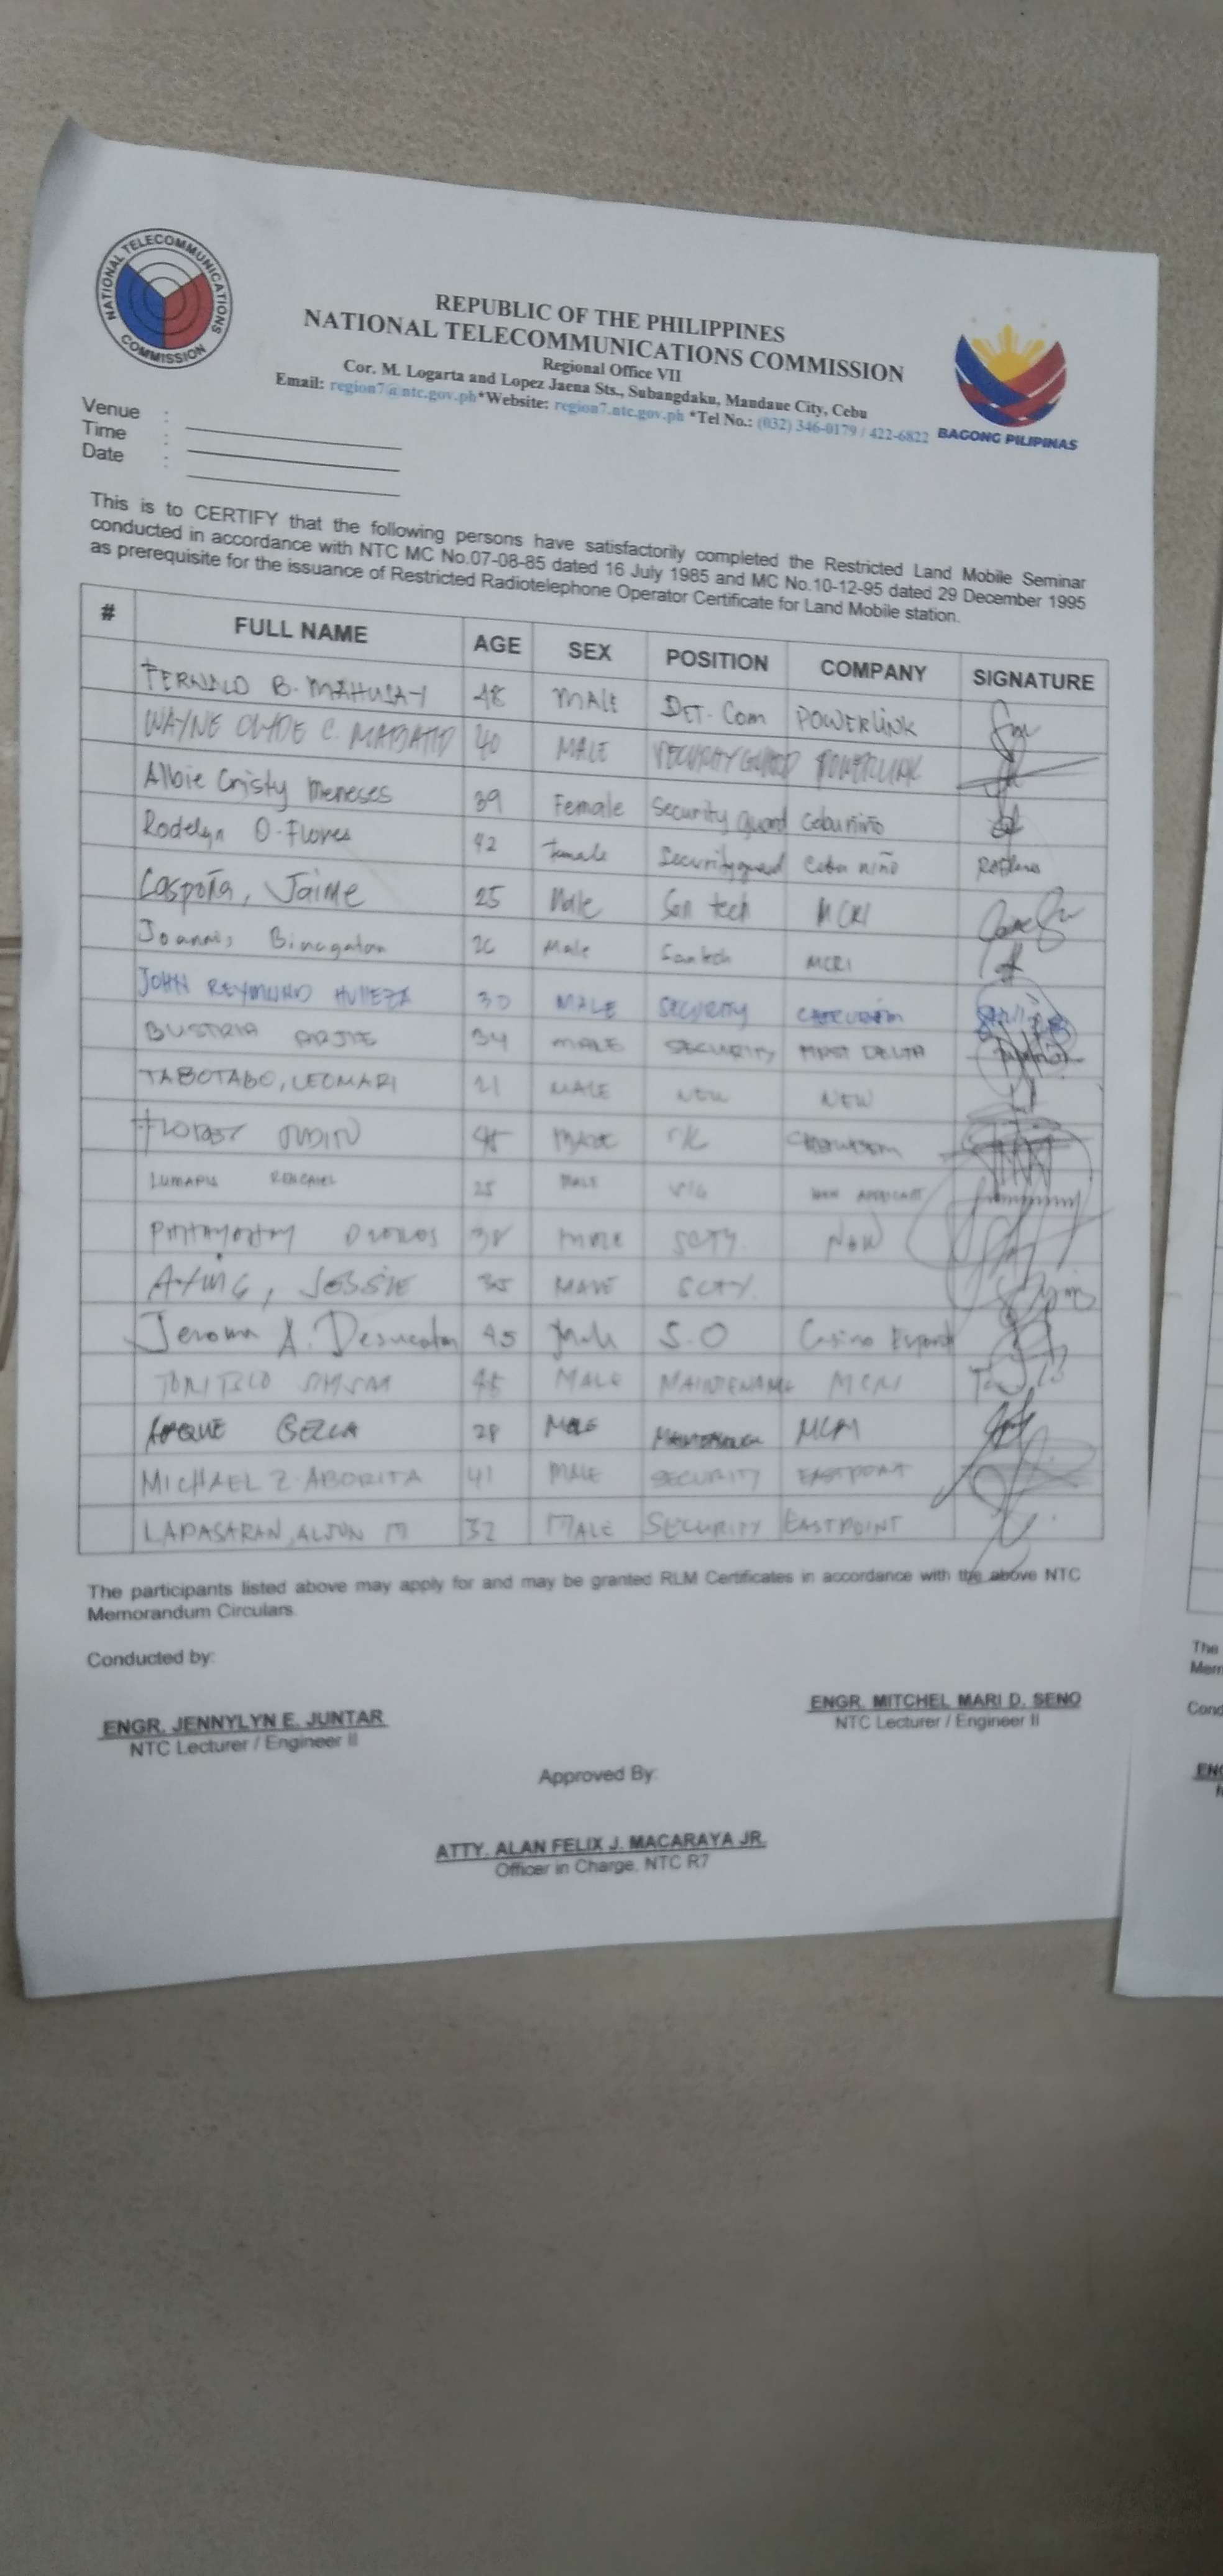 NATIONAL TELECOMMUNICATIONS COMMISSION
REPUBLIC OF THE PHILIPPINES
NATIONAL TELECOMMUNICATIONS COMMISSION
Regional Office VII
Cor. M. Logarta and Lopez Jaena Sts., Subangdaku, Mandaue City, Cebu
Email: region7@ntc.gov.ph*Website: region7.ntc.gov.ph *Tel No.: (032) 346-0179 / 422-6822
BAGONG PILIPINAS
Venue :
Time :
Date :
This is to CERTIFY that the following persons have satisfactorily completed the Restricted Land Mobile Seminar
conducted in accordance with NTC MC No.07-08-85 dated 16 July 1985 and MC No.10-12-95 dated 29 December 1995
as prerequisite for the issuance of Restricted Radiotelephone Operator Certificate for Land Mobile station.
# FULL NAME AGE SEX POSITION COMPANY SIGNATURE
B. MAHUSAY 48 MALE DET. Com POWERLINK
WAYNE CLYDE C. 40 MALE SECURITY GUARD POWERLINK
Albie Cristy Meneses 39 Female Security guard Cebu niño
Rodelyn O. Flores 42 female Security guard Cebu niño
Caspoña, Jaime 25 Male San tech MCRI
26 Male San tech MCRI
JOHN REYMUND 30 MALE SECURITY
BUSTRIA ARJIE 34 MALE SECURITY
TABOTABO, LEOMARI 21 MALE NEW NEW
MALE
LUMAPIS 25 MALE NEW APPLICANT
38 MALE SCTY. NEW
AYING, JESSIE 35 MALE SCTY.
Jerome A. 45 Male S.O Casino
MALE MAINTENANCE MCRI
28 MALE
MICHAEL Z. ABORITA 41 MALE SECURITY EASTPOINT
LAPASARAN, ALJUN M 32 MALE SECURITY EASTPOINT
The participants listed above may apply for and may be granted RLM Certificates in accordance with the above NTC
Memorandum Circulars.
Conducted by:
ENGR. JENNYLYN E. JUNTAR
NTC Lecturer / Engineer II
ENGR. MITCHEL MARI D. SENO
NTC Lecturer / Engineer II
Approved By:
ATTY. ALAN FELIX J. MACARAYA JR.
Officer in Charge, NTC R7
The
Mem
Cond